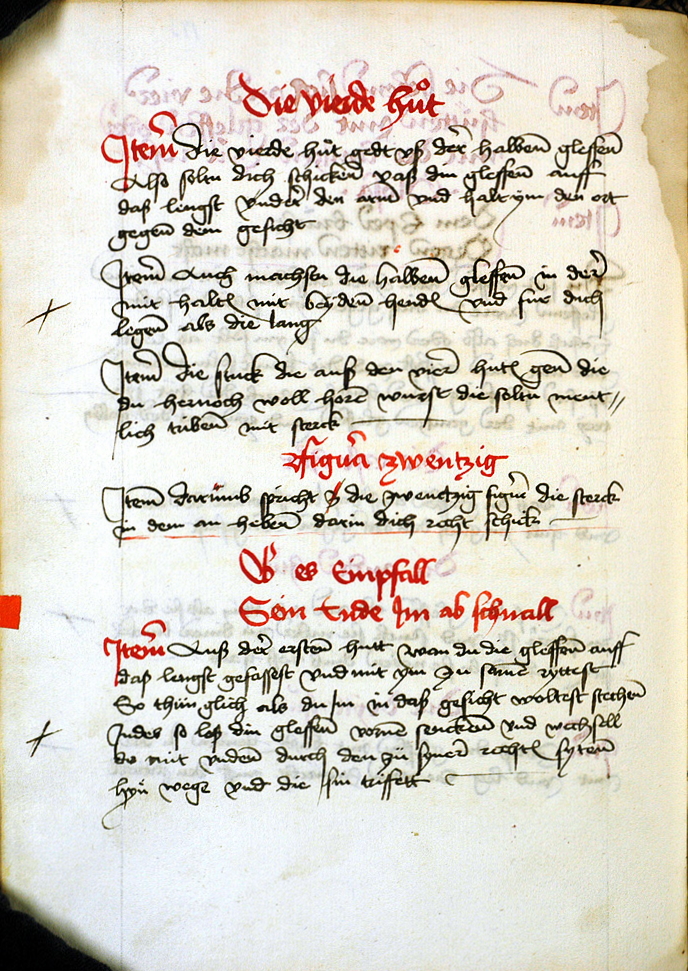 Die vierde hůt
Item die vierde hůt gedt vß der halbenn gleffenn
Also soltu dich schickenn vaß din gleffenn auff
daß lengst vnder den arm vnd halt ym den ort
gegen dem gesicht
Item Auch machstu die halbenn gleffenn in der
mit halten mit beyden hendenn vnd für dich
legenn als die lang
Item die stuck die auß den vier huten gen die
du hernoch woll horen wurst die soltu ment
lich tribenn mit sterck
Figura zwentzig
Item darůmb spricht die zwenczig figur die sterck
in dem an hebenn darin dich recht schick
Ob es Empfall
Sein Ende Im ab schnall
Item Auß der ersten hutt wan du die gleffenn auff
daß lengst gefassest vnd mit ym zu samen ryttest
So thün glich als du Im in daß gesicht woltest stechenn
Indes so loß din gleffenn vornen senckenn vnd wechsell
do mit vnden durch den zu syner rechten sytenn
hyn wegk vnd die sin triffett